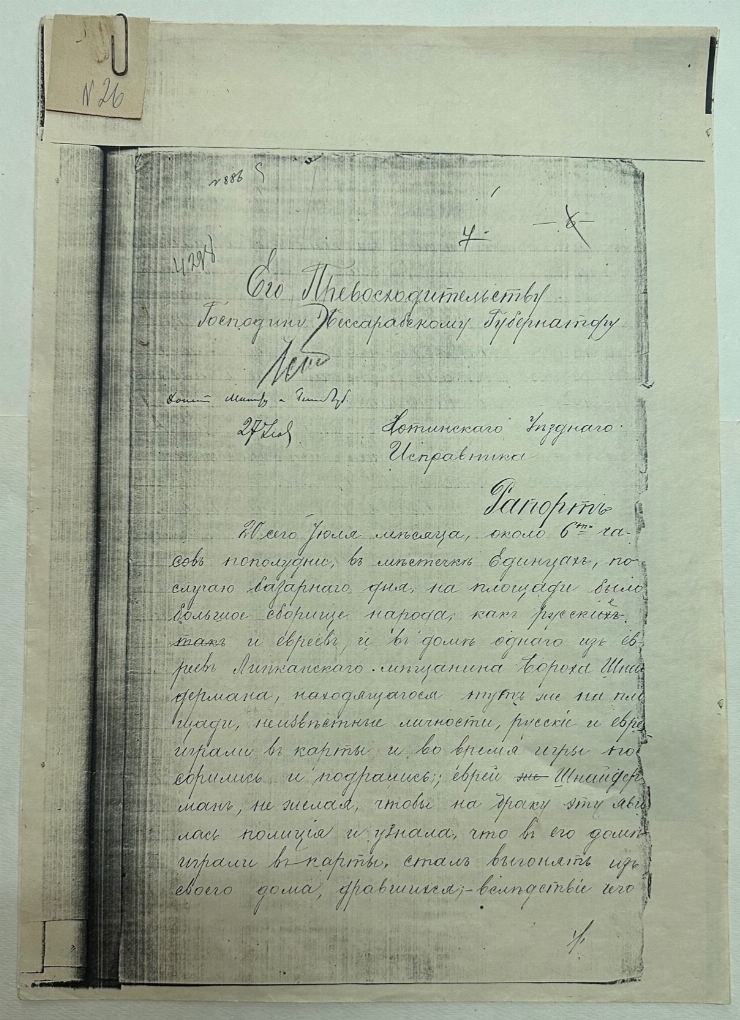 N 26
№ 886
4
6
4298
Его Превосходительству
Господину Бессарабскому Губернатору
27 Іюл
Хотинскаго Уѣзднаго
Исправника
Рапортъ
20 сего Іюля мѣсяца, около 6ти ча-
совъ пополудни, въ мѣстечкѣ Единцахъ, по
случаю базарнаго дня, на площади было
большое сборище народа, какъ русскихъ
такъ и евреевъ, и въ домѣ одного изъ ев
реевъ Липканскаго мѣщанина Бороха Шпай
дермана, находящагося тутъ же на пло
щади, неизвѣстные личности, русскіе и евре
играли въ карты и во время игры по
сорились и подрались; еврей Шпайдер
манъ, не желая, чтобы на драку эту яви
лась полиція и узнала, что въ его домѣ
играли въ карты, сталъ выгонять изъ
своего дома, дравшихся, вслѣдствіе чего